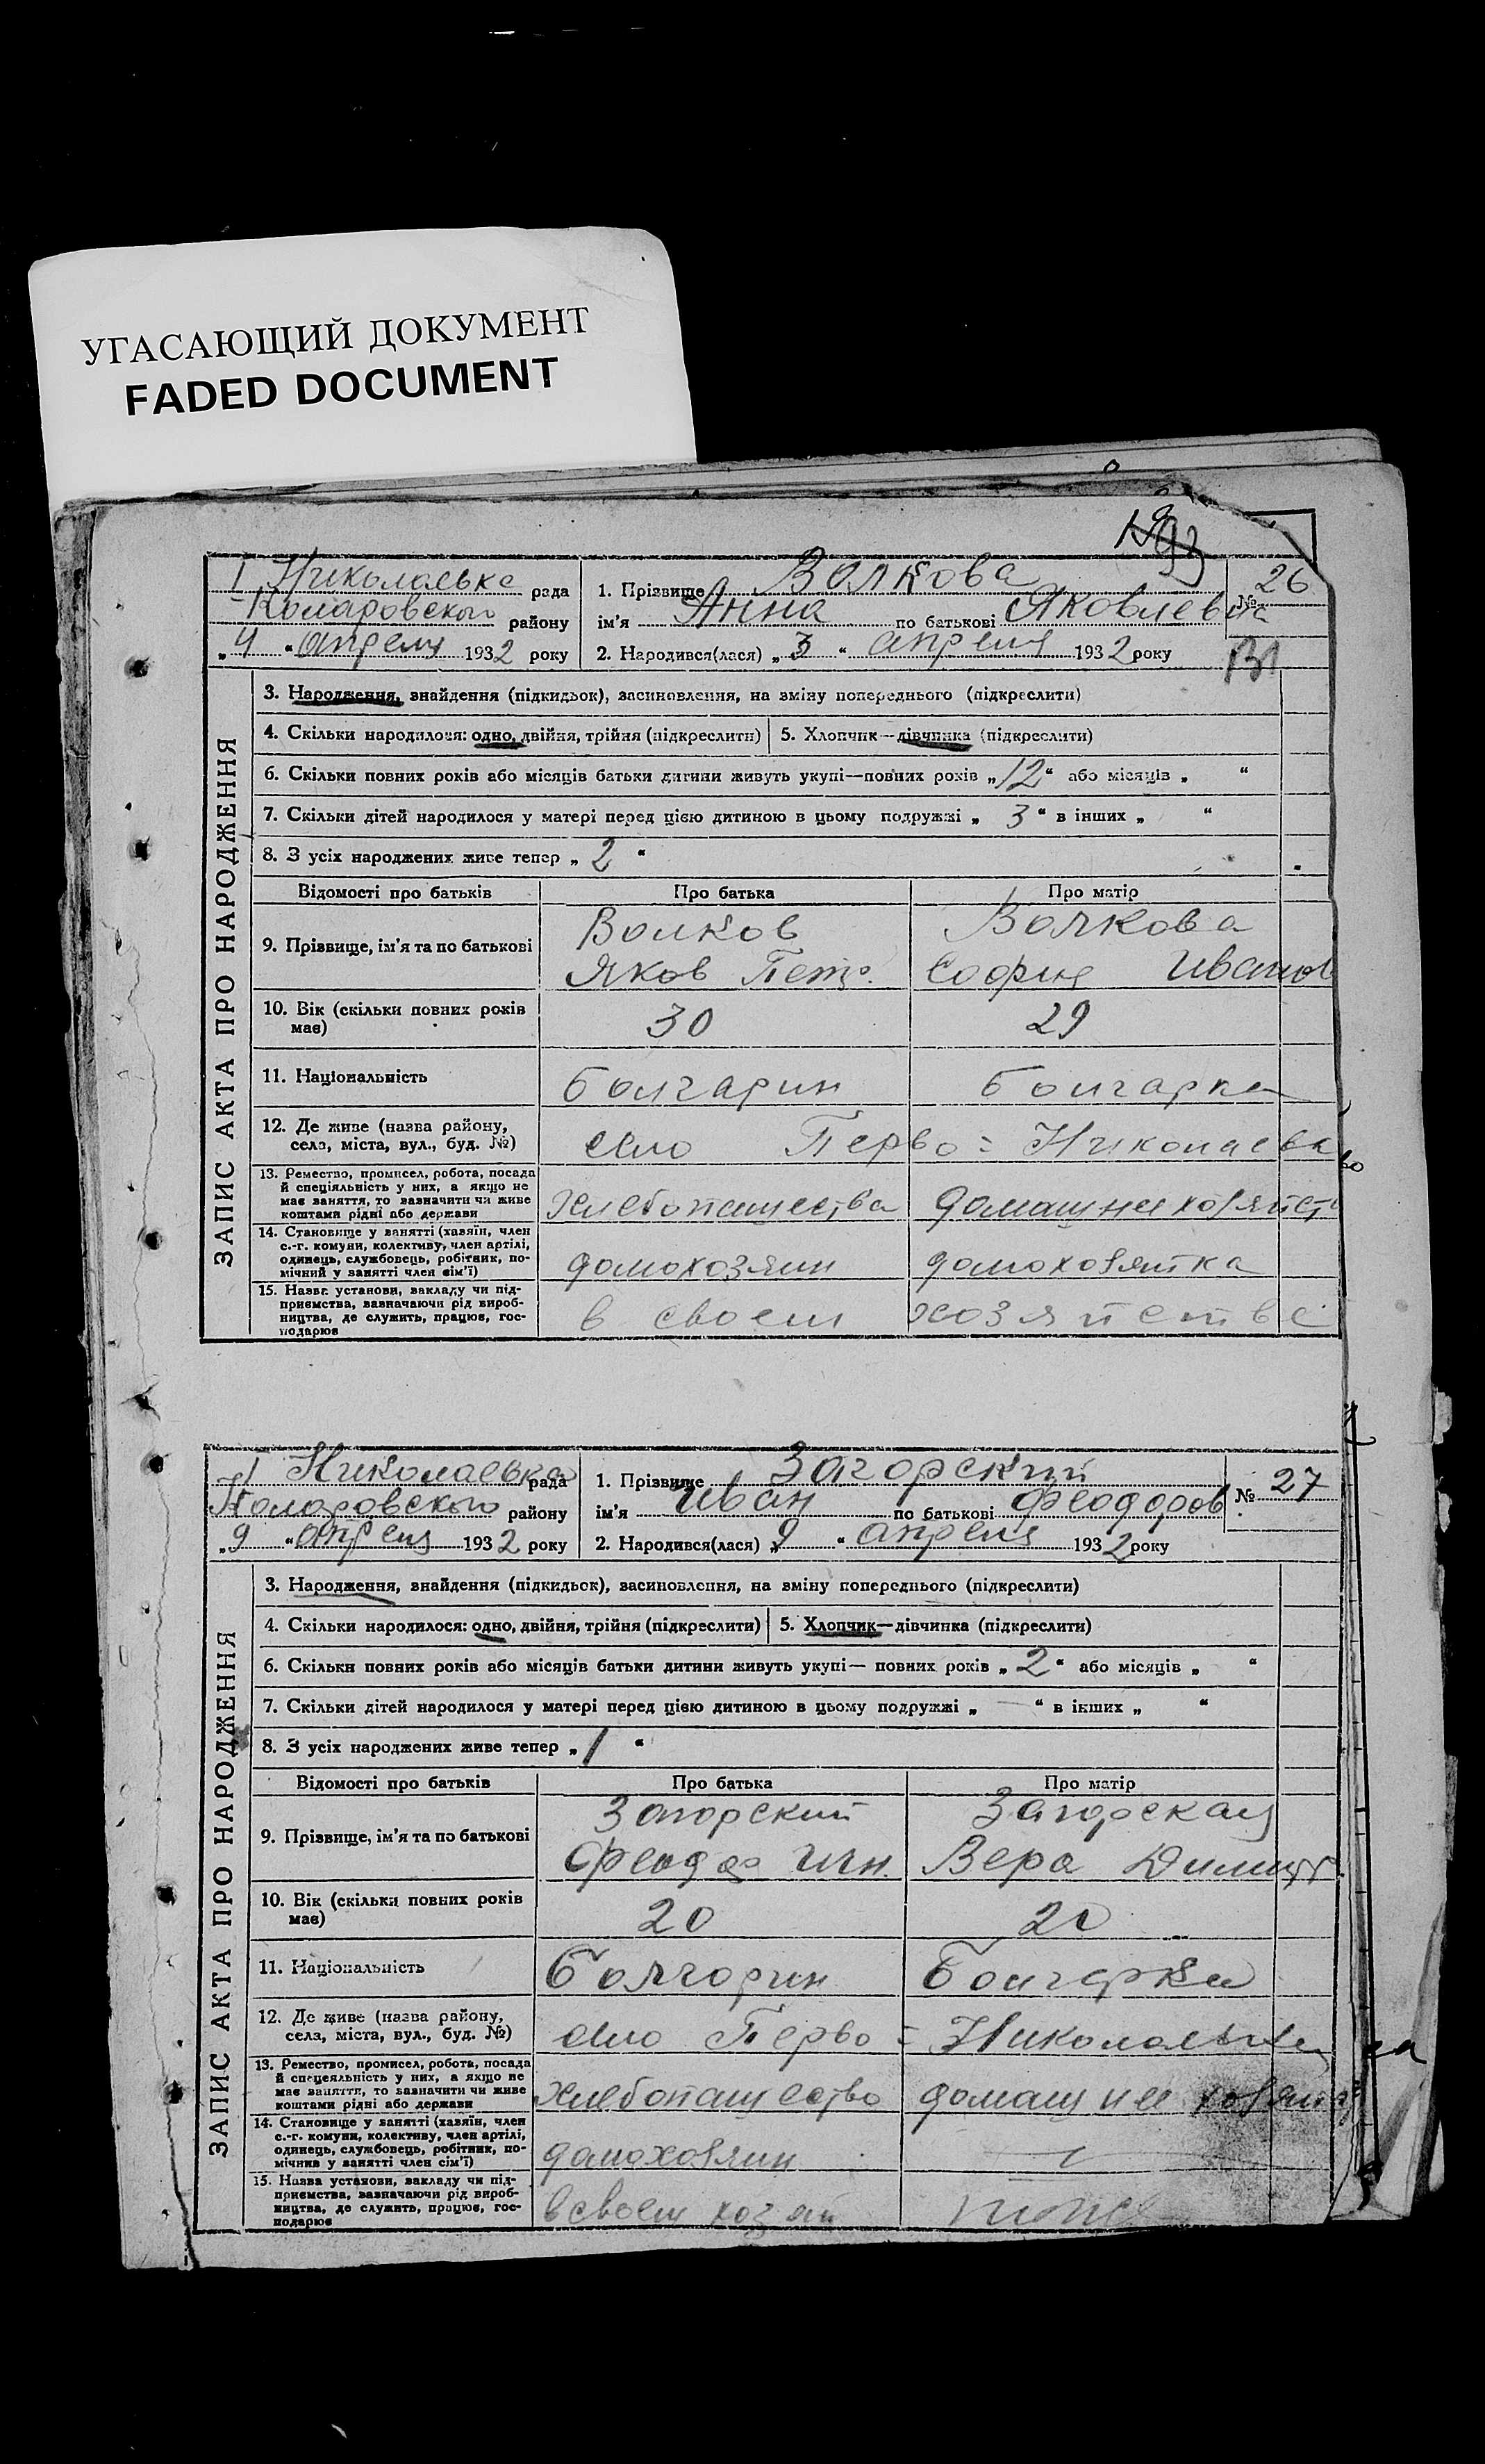 УГАСАЮЩИЙ ДОКУМЕНТ
FADED DOCUMENT
I Николаевка рада
Комаровского району
„4“ апреля 1932 року
1. Прізвище Волкова
ім'я Анна по батькові Яковлевна
2. Народився(лася) „3“ апреля 1932 року
№ 26
ЗАПИС АКТА ПРО НАРОДЖЕННЯ
3. Народження, знайдення (підкидьок), засиновлення, на зміну попереднього (підкреслити)
4. Скільки народилося: одно, двійня, трійня (підкреслити) 5. Хлопчик—дівчинка (підкреслити)
6. Скільки повних років або місяців батьки дитини живуть укупі—повних років „12“ або місяців „ “
7. Скільки дітей народилося у матері перед цією дитиною в цьому подружжі „ 3 “ в інших „ “
8. З усіх народжених живе тепер „ 2 “
Відомості про батьків Про батька Про матір
9. Прізвище, ім'я та по батькові
Волков Волкова
Яков Петр. София Иванов
10. Вік (скільки повних років має) 30 29
11. Національність Болгарин Болгарка
12. Де живе (назва району, села, міста, вул., буд. №) село Перво=Николаевка
13. Ремество, промисел, робота, посада
й спеціяльність у них, а якщо не
має заняття, то зазначити чи живе
коштами рідні або держави
Хлебопашества домашнее хозяйст
14. Становище у занятті (хазяїн, член
с.-г. комуни, колективу, член артілі,
одинець, службовець, робітник, по-
мічний у занятті член сім'ї)
домохозяин домохозяйка
15. Назва установи, закладу чи під-
приємства, зазначаючи рід вироб-
ництва, де служить, працює, гос-
подарює
в своем хозяйстве
I Николаевка рада
Комаровского району
„9“ апреля 1932 року
1. Прізвище Загорский
ім'я Иван по батькові Феодоров
2. Народився(лася) „9“ апреля 1932 року
№ 27
ЗАПИС АКТА ПРО НАРОДЖЕННЯ
3. Народження, знайдення (підкидьок), засиновлення, на зміну попереднього (підкреслити)
4. Скільки народилося: одно, двійня, трійня (підкреслити) 5. Хлопчик—дівчинка (підкреслити)
6. Скільки повних років або місяців батьки дитини живуть укупі— повних років „ 2 “ або місяців „ “
7. Скільки дітей народилося у матері перед цією дитиною в цьому подружжі „ — “ в інших „ “
8. З усіх народжених живе тепер „ 1 “
Відомості про батьків Про батька Про матір
9. Прізвище, ім'я та по батькові
Загорский Загорская
Феодор Вера Димитр.
10. Вік (скільки повних років має) 20 20
11. Національність Болгарин Болгарка
12. Де живе (назва району, села, міста, вул., буд. №) село Перво=Николаевка
13. Ремество, промисел, робота, посада
й спецеяльність у них, а якщо не
має заняття, то зазначити чи живе
коштами рідні або держави
Хлебопашество домашнее хозяйст
14. Становище у занятті (хазяїн, член
с.-г. комуни, колективу, член артілі,
одинець, службовець, робітник, по-
мічнив у занятті член сім'ї)
домохозяин —
15. Назва установи, закладу чи під-
приємства, зазначаючи рід вироб-
ництва, де служить, працює, гос-
подарює
в своем хозяй тоже